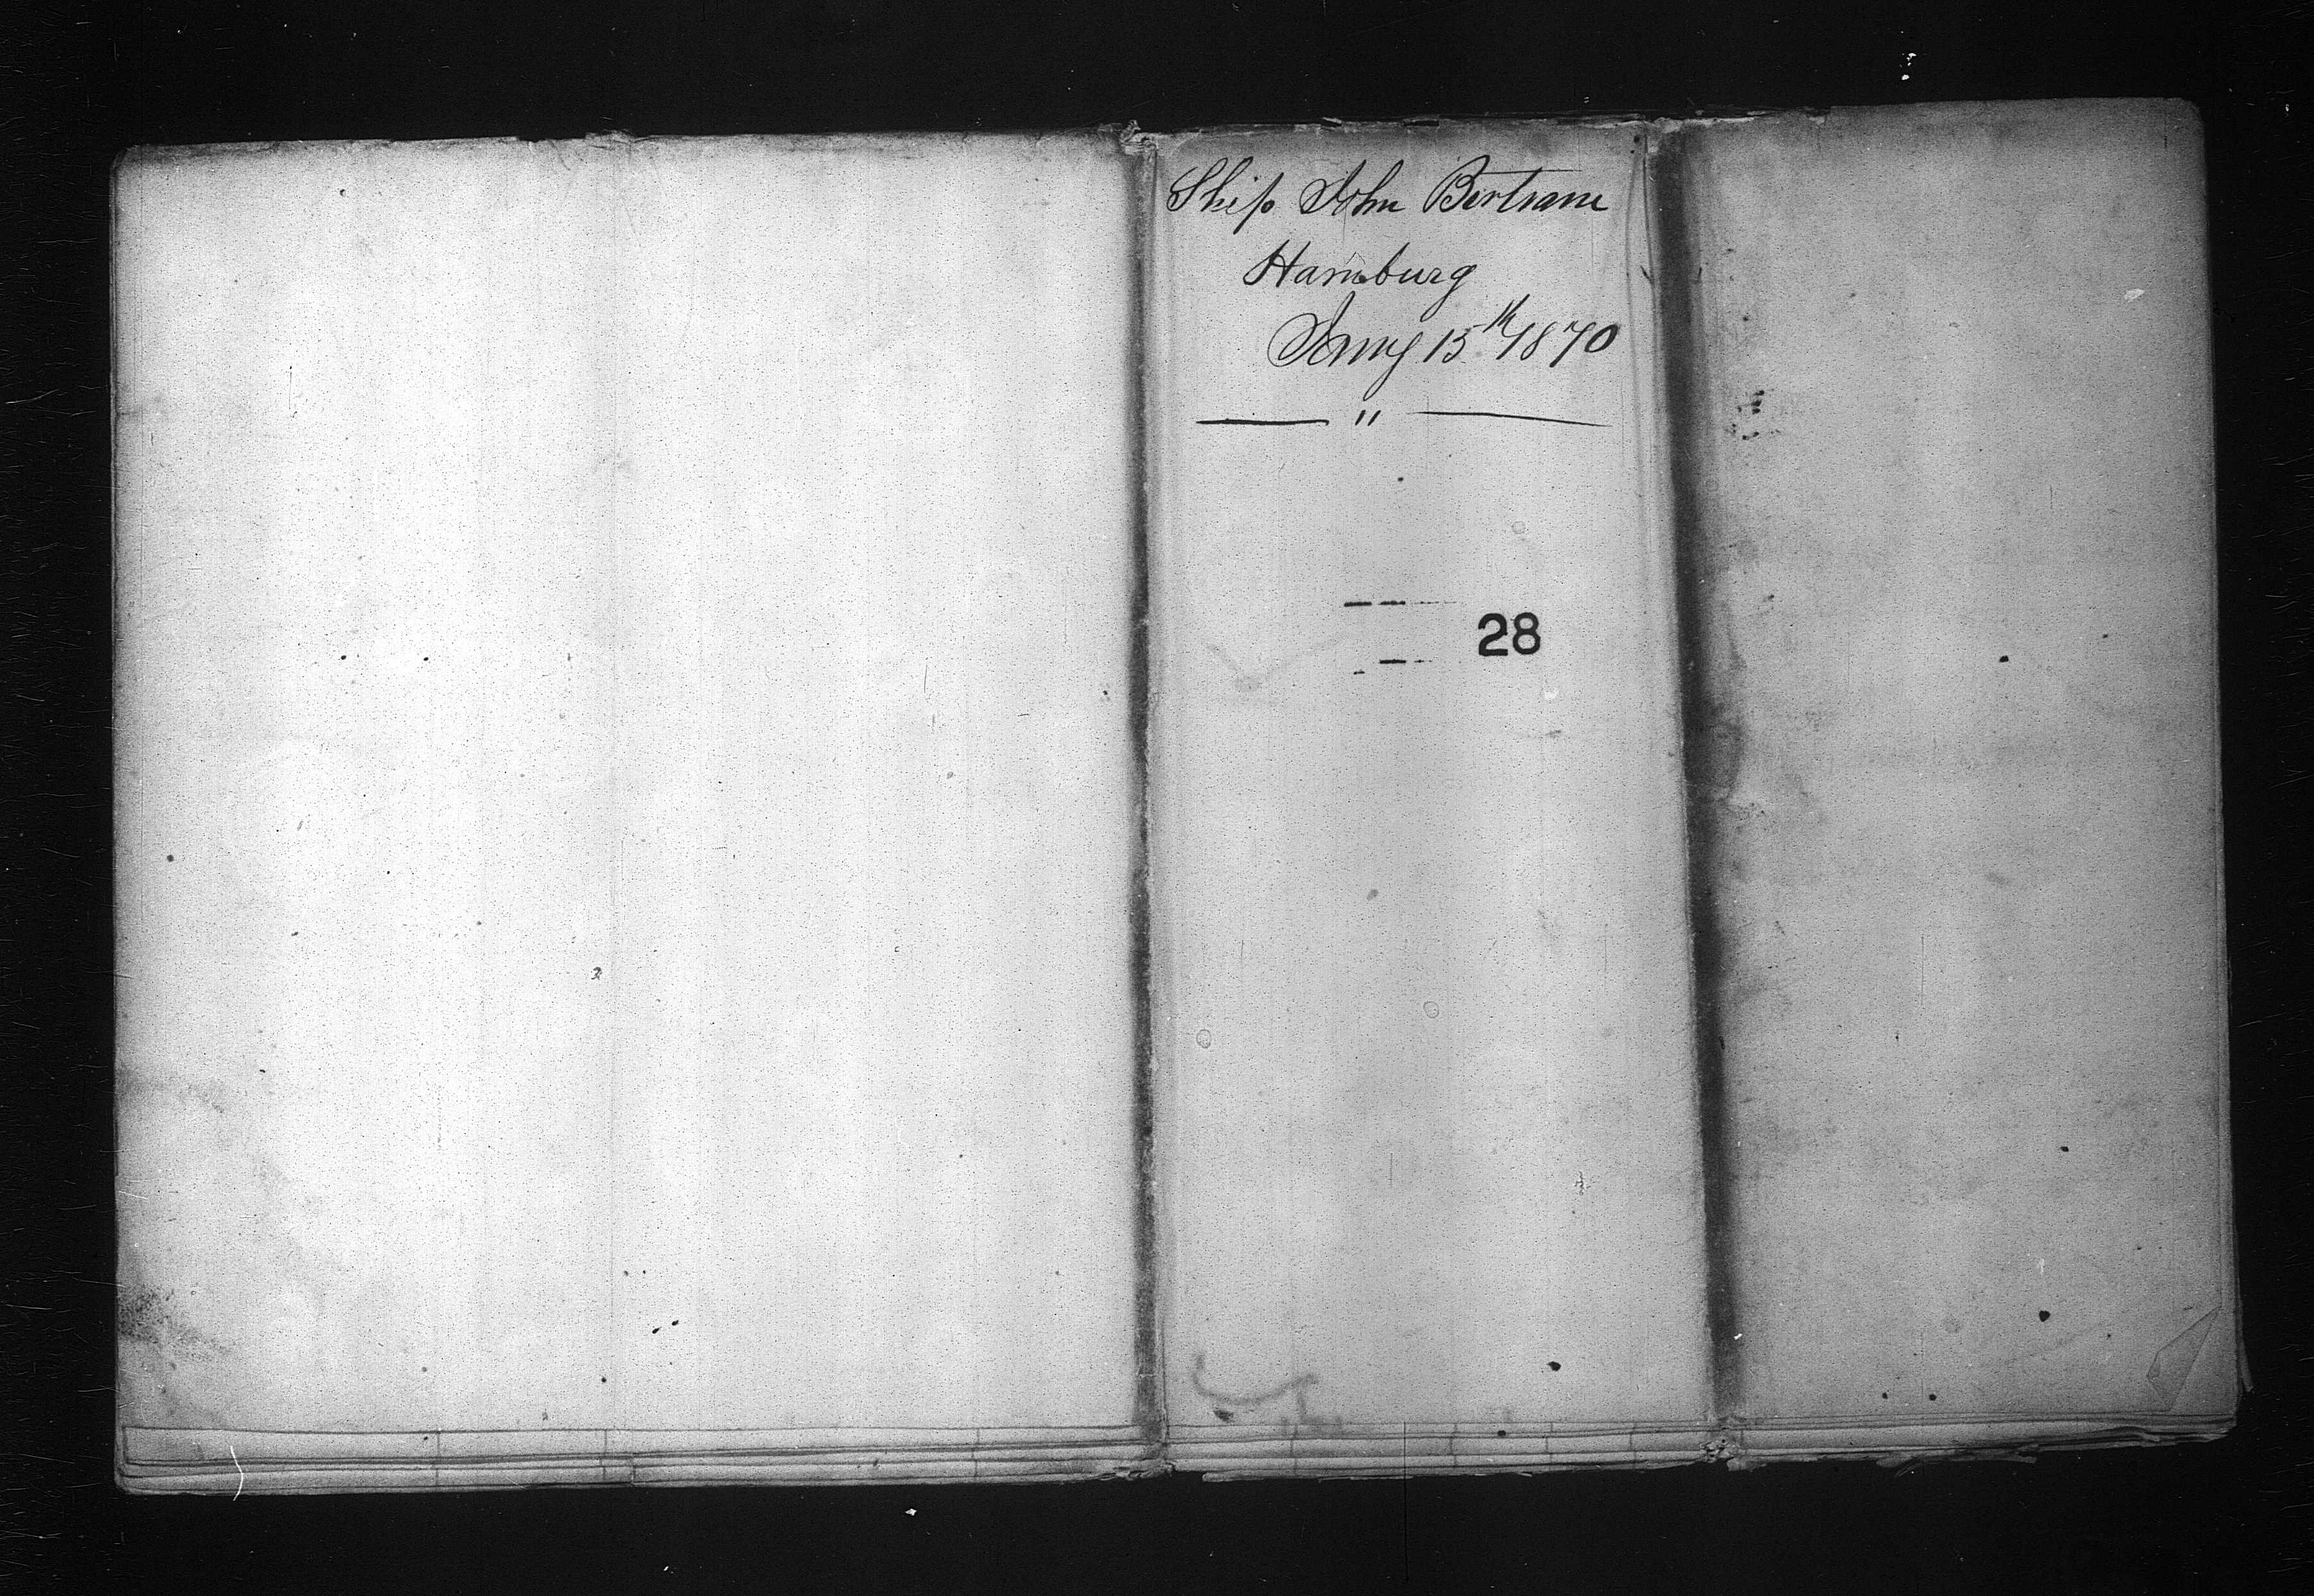 Ship John Bertram
Hamburg
Jany 15th 1870
— " —
28